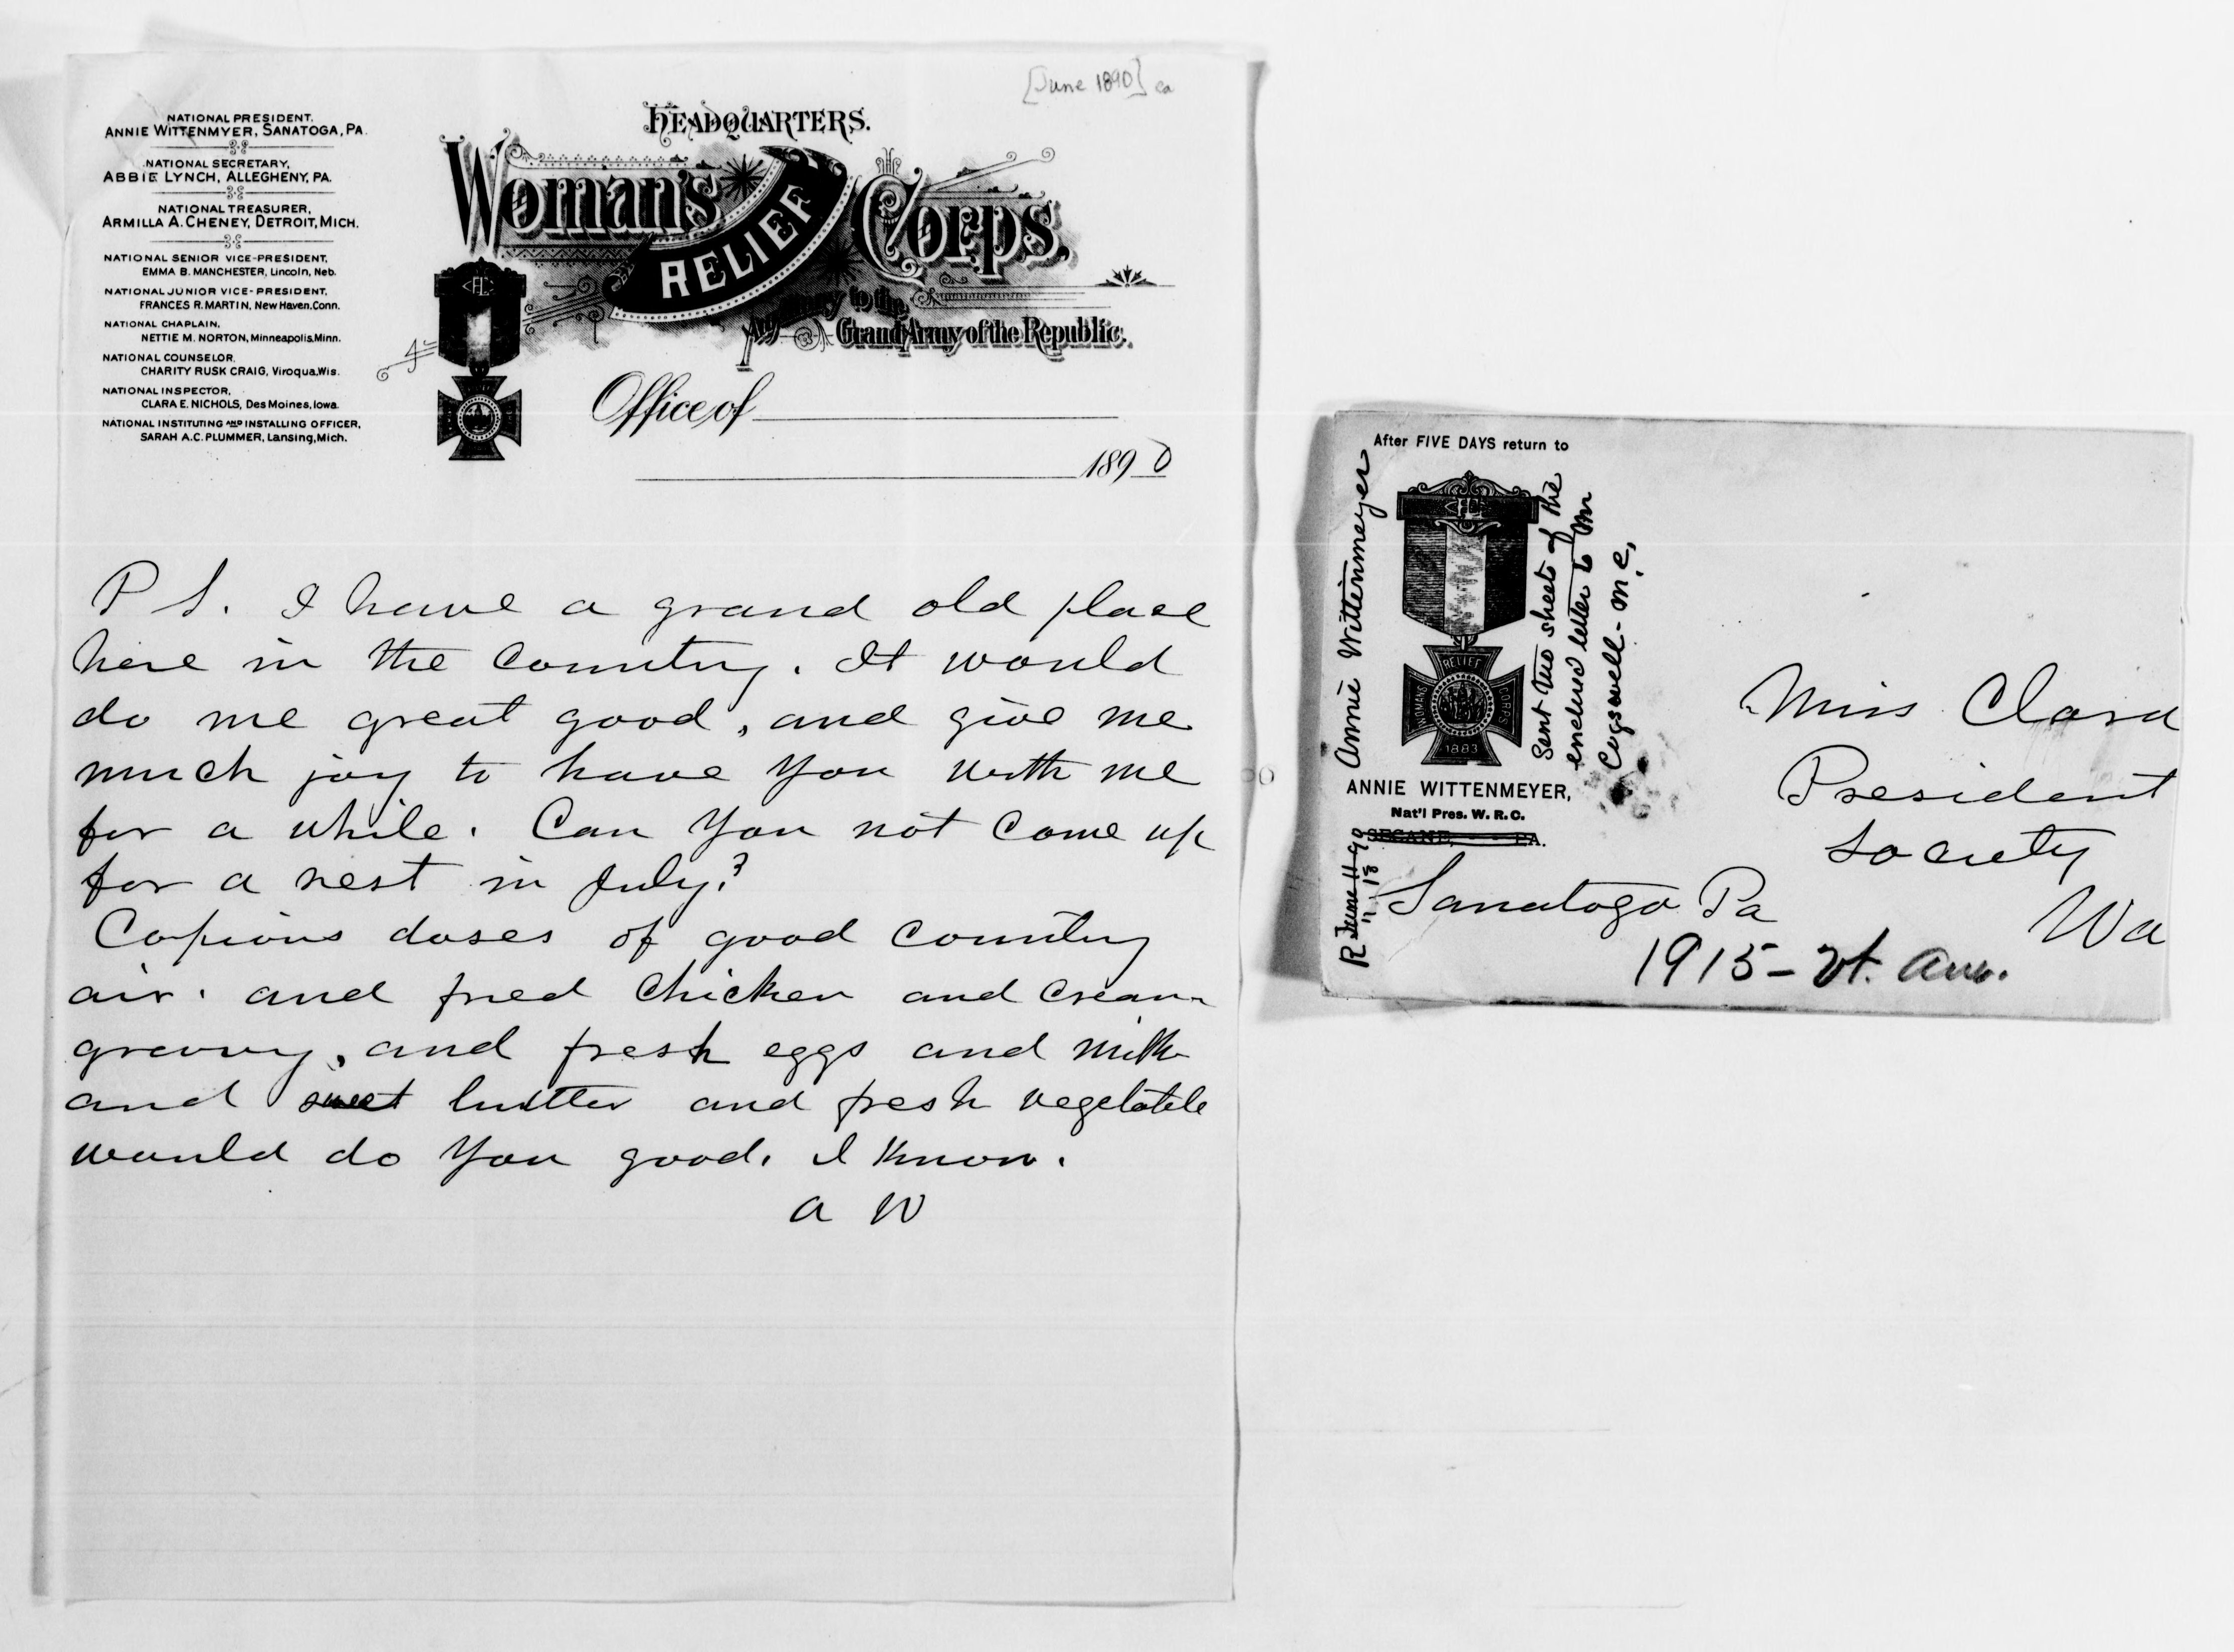 [June 1890] ca
NATIONAL PRESIDENT,
ANNIE WITTENMYER, SANATOGA, PA.
NATIONAL SECRETARY,
ABBIE LYNCH, ALLEGHENY, PA.
NATIONAL TREASURER,
ARMILLA A. CHENEY, DETROIT, MICH.
NATIONAL SENIOR VICE-PRESIDENT,
EMMA B. MANCHESTER, Lincoln, Neb.
NATIONAL JUNIOR VICE-PRESIDENT,
FRANCES R. MARTIN, New Haven, Conn.
NATIONAL CHAPLAIN,
NETTIE M. NORTON, Minneapolis, Minn.
NATIONAL COUNSELOR,
CHARITY RUSK CRAIG, Viroqua, Wis.
NATIONAL INSPECTOR,
CLARA E. NICHOLS, Des Moines, Iowa.
NATIONAL INSTITUTING AND INSTALLING OFFICER,
SARAH A.C. PLUMMER, Lansing, Mich.
HEADQUARTERS.
Woman's RELIEF Corps,
Auxiliary to the
Grand Army of the Republic.
Office of
1890
P S. I have a grand old place
here in the Country. It would
do me great good, and give me
much joy to have you with me
for a while. Can you not come up
for a rest in July?
Copious doses of good country
air. and fried chicken and cream
gravy, and fresh eggs and milk
and sweet butter and fresh vegetable
would do you good. I know.
A W
After FIVE DAYS return to
Annie Wittenmeyer
RELIEF
WOMANS
CORPS
1883
Sent two sheets of the
enclosed letter to Mr
Cogswell - M.C.
ANNIE WITTENMEYER,
Nat'l Pres. W. R. C.
SECANE, - - PA.
Sanatoga Pa
R June 11-90
" 18
Miss Clara
President
Society
Wa
1915 - Vt. Ave.